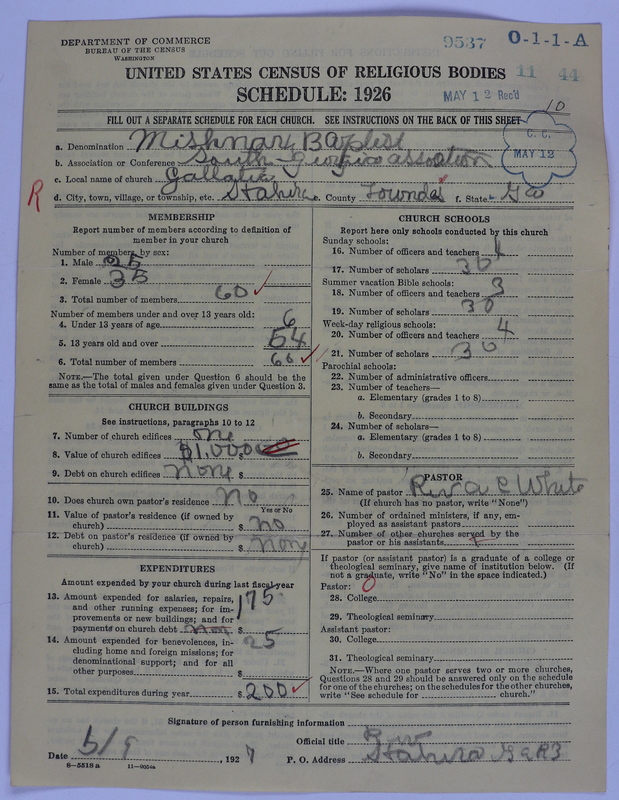 DEPARTMENT OF COMMERCE
BUREAU OF THE CENSUS
WASHINGTON
9537 0-1-1-A
11 44
UNITED STATES CENSUS OF RELIGIOUS BODIES
SCHEDULE: 1926
MAY 12 Rec'd
10
FILL OUT A SEPARATE SCHEDULE FOR EACH CHURCH. SEE INSTRUCTIONS ON THE BACK OF THIS SHEET
C. C.
MAY 12
a. Denomination Mishnary Baptist
b. Association or Conference South
c. Local name of church
R
d. City, town, village, or township, etc. Stahira e. County Townds f. State
MEMBERSHIP
Report number of members according to definition of
member in your church
Number of members, by sex:
1. Male 25
2. Female 35
3. Total number of members 60
Number of members under and over 13 years old:
4. Under 13 years of age 6
5. 13 years old and over 54
6. Total number of members 60
NOTE.—The total given under Question 6 should be the
same as the total of males and females given under Question 3.
CHURCH BUILDINGS
See instructions, paragraphs 10 to 12
7. Number of church edifices one
8. Value of church edifices $1,000
9. Debt on church edifices none $
10. Does church own pastor's residence no
Yes or No
11. Value of pastor's residence (if owned by
church) $ no
12. Debt on pastor's residence (if owned by
church) $ none
EXPENDITURES
Amount expended by your church during last fiscal year
13. Amount expended for salaries, repairs,
and other running expenses; for im-
provements or new buildings; and for
payments on church debt $ 175
14. Amount expended for benevolences, in-
cluding home and foreign missions; for
denominational support; and for all
other purposes $ 25
15. Total expenditures during year $ 200
CHURCH SCHOOLS
Report here only schools conducted by this church
Sunday schools:
16. Number of officers and teachers
17. Number of scholars 30
Summer vacation Bible schools:
18. Number of officers and teachers 3
19. Number of scholars 30
Week-day religious schools:
20. Number of officers and teachers 4
21. Number of scholars 30
Parochial schools:
22. Number of administrative officers
23. Number of teachers—
a. Elementary (grades 1 to 8)
b. Secondary
24. Number of scholars—
a. Elementary (grades 1 to 8)
b. Secondary
PASTOR
25. Name of pastor Riva C White
(If church has no pastor, write "None")
26. Number of ordained ministers, if any, em-
ployed as assistant pastors
27. Number of other churches served by the
pastor or his assistants
If pastor (or assistant pastor) is a graduate of a college or
theological seminary, give name of institution below. (If
not a graduate, write "No" in the space indicated.)
Pastor: 0
28. College
29. Theological seminary
Assistant pastor:
30. College
31. Theological seminary
NOTE.—Where one pastor serves two or more churches,
Questions 28 and 29 should be answered only on the schedule
for one of the churches; on the schedules for the other churches,
write "See schedule for church."
Signature of person furnishing information
Official title
Date 5/9, 1927 P. O. Address Stahira Ga R3
8-5518 a 11-9054a